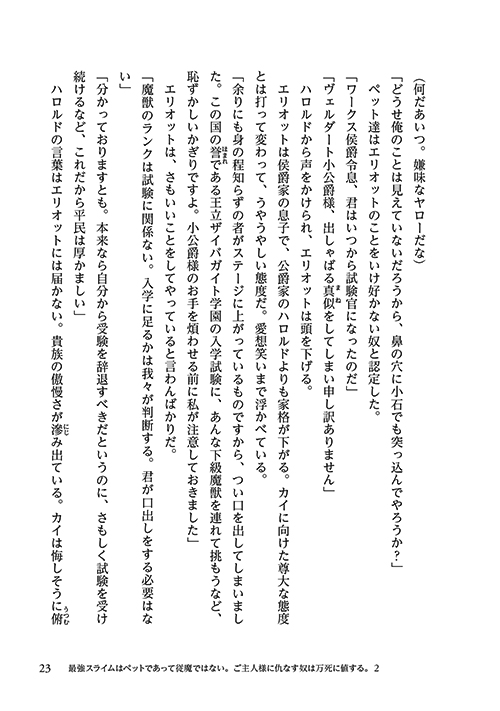 （何だあいつ。嫌味なヤローだな）
「どうせ俺のことは見えていないだろうから、鼻の穴に小石でも突っ込んでやろうか？」
ペット達はエリオットのことをいけ好かない奴と認定した。
「ワークス侯爵令息、君はいつから試験官になったのだ」
「ヴェルダート小公爵様、出しゃばる真似をしてしまい申し訳ありません」
ハロルドから声をかけられ、エリオットは頭を下げる。
エリオットは侯爵家の息子で、公爵家のハロルドよりも家格が下がる。カイに向けた尊大な態度
とは打って変わって、うやうやしい態度だ。愛想笑いまで浮かべている。
「余りにも身の程知らずの者がステージに上がっているものですから、つい口を出してしまいまし
た。この国の誉である王立ザイバガイト学園の入学試験に、あんな下級魔獣を連れて挑もうなど、
恥ずかしいかぎりですよ。小公爵様のお手を煩わせる前に私が注意しておきました」
エリオットは、さもいいことをしてやっていると言わんばかりだ。
「魔獣のランクは試験に関係ない。入学に足るかは我々が判断する。君が口出しをする必要はな
い」
「分かっておりますとも。本来なら自分から受験を辞退すべきだというのに、さもしく試験を受け
続けるなど、これだから平民は厚かましい」
ハロルドの言葉はエリオットには届かない。貴族の傲慢さが滲み出ている。カイは悔しそうに俯
23 最強スライムはペットであって従魔ではない。ご主人様に仇なす奴は万死に値する。2